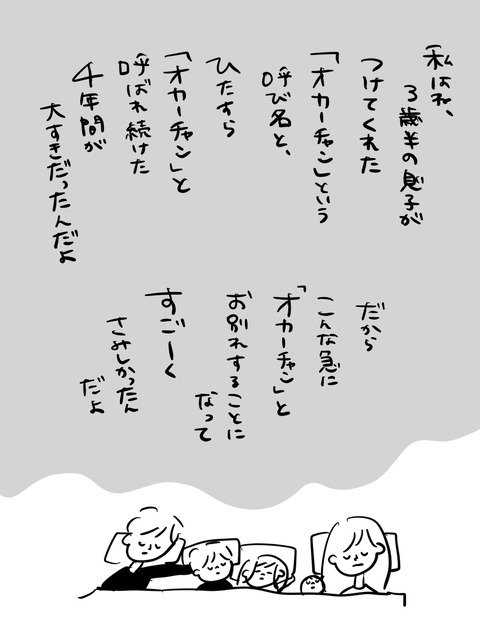 私はね、
3歳半の息子が
つけてくれた
「オカーチャン」という
呼び名と、
ひたすら
「オカーチャン」と
呼ばれ続けた
4年間が
大すきだったんだよ
だから
こんな急に
「オカーチャン」と
お別れすることに
なって
すごーく
さみしかったん
だよ